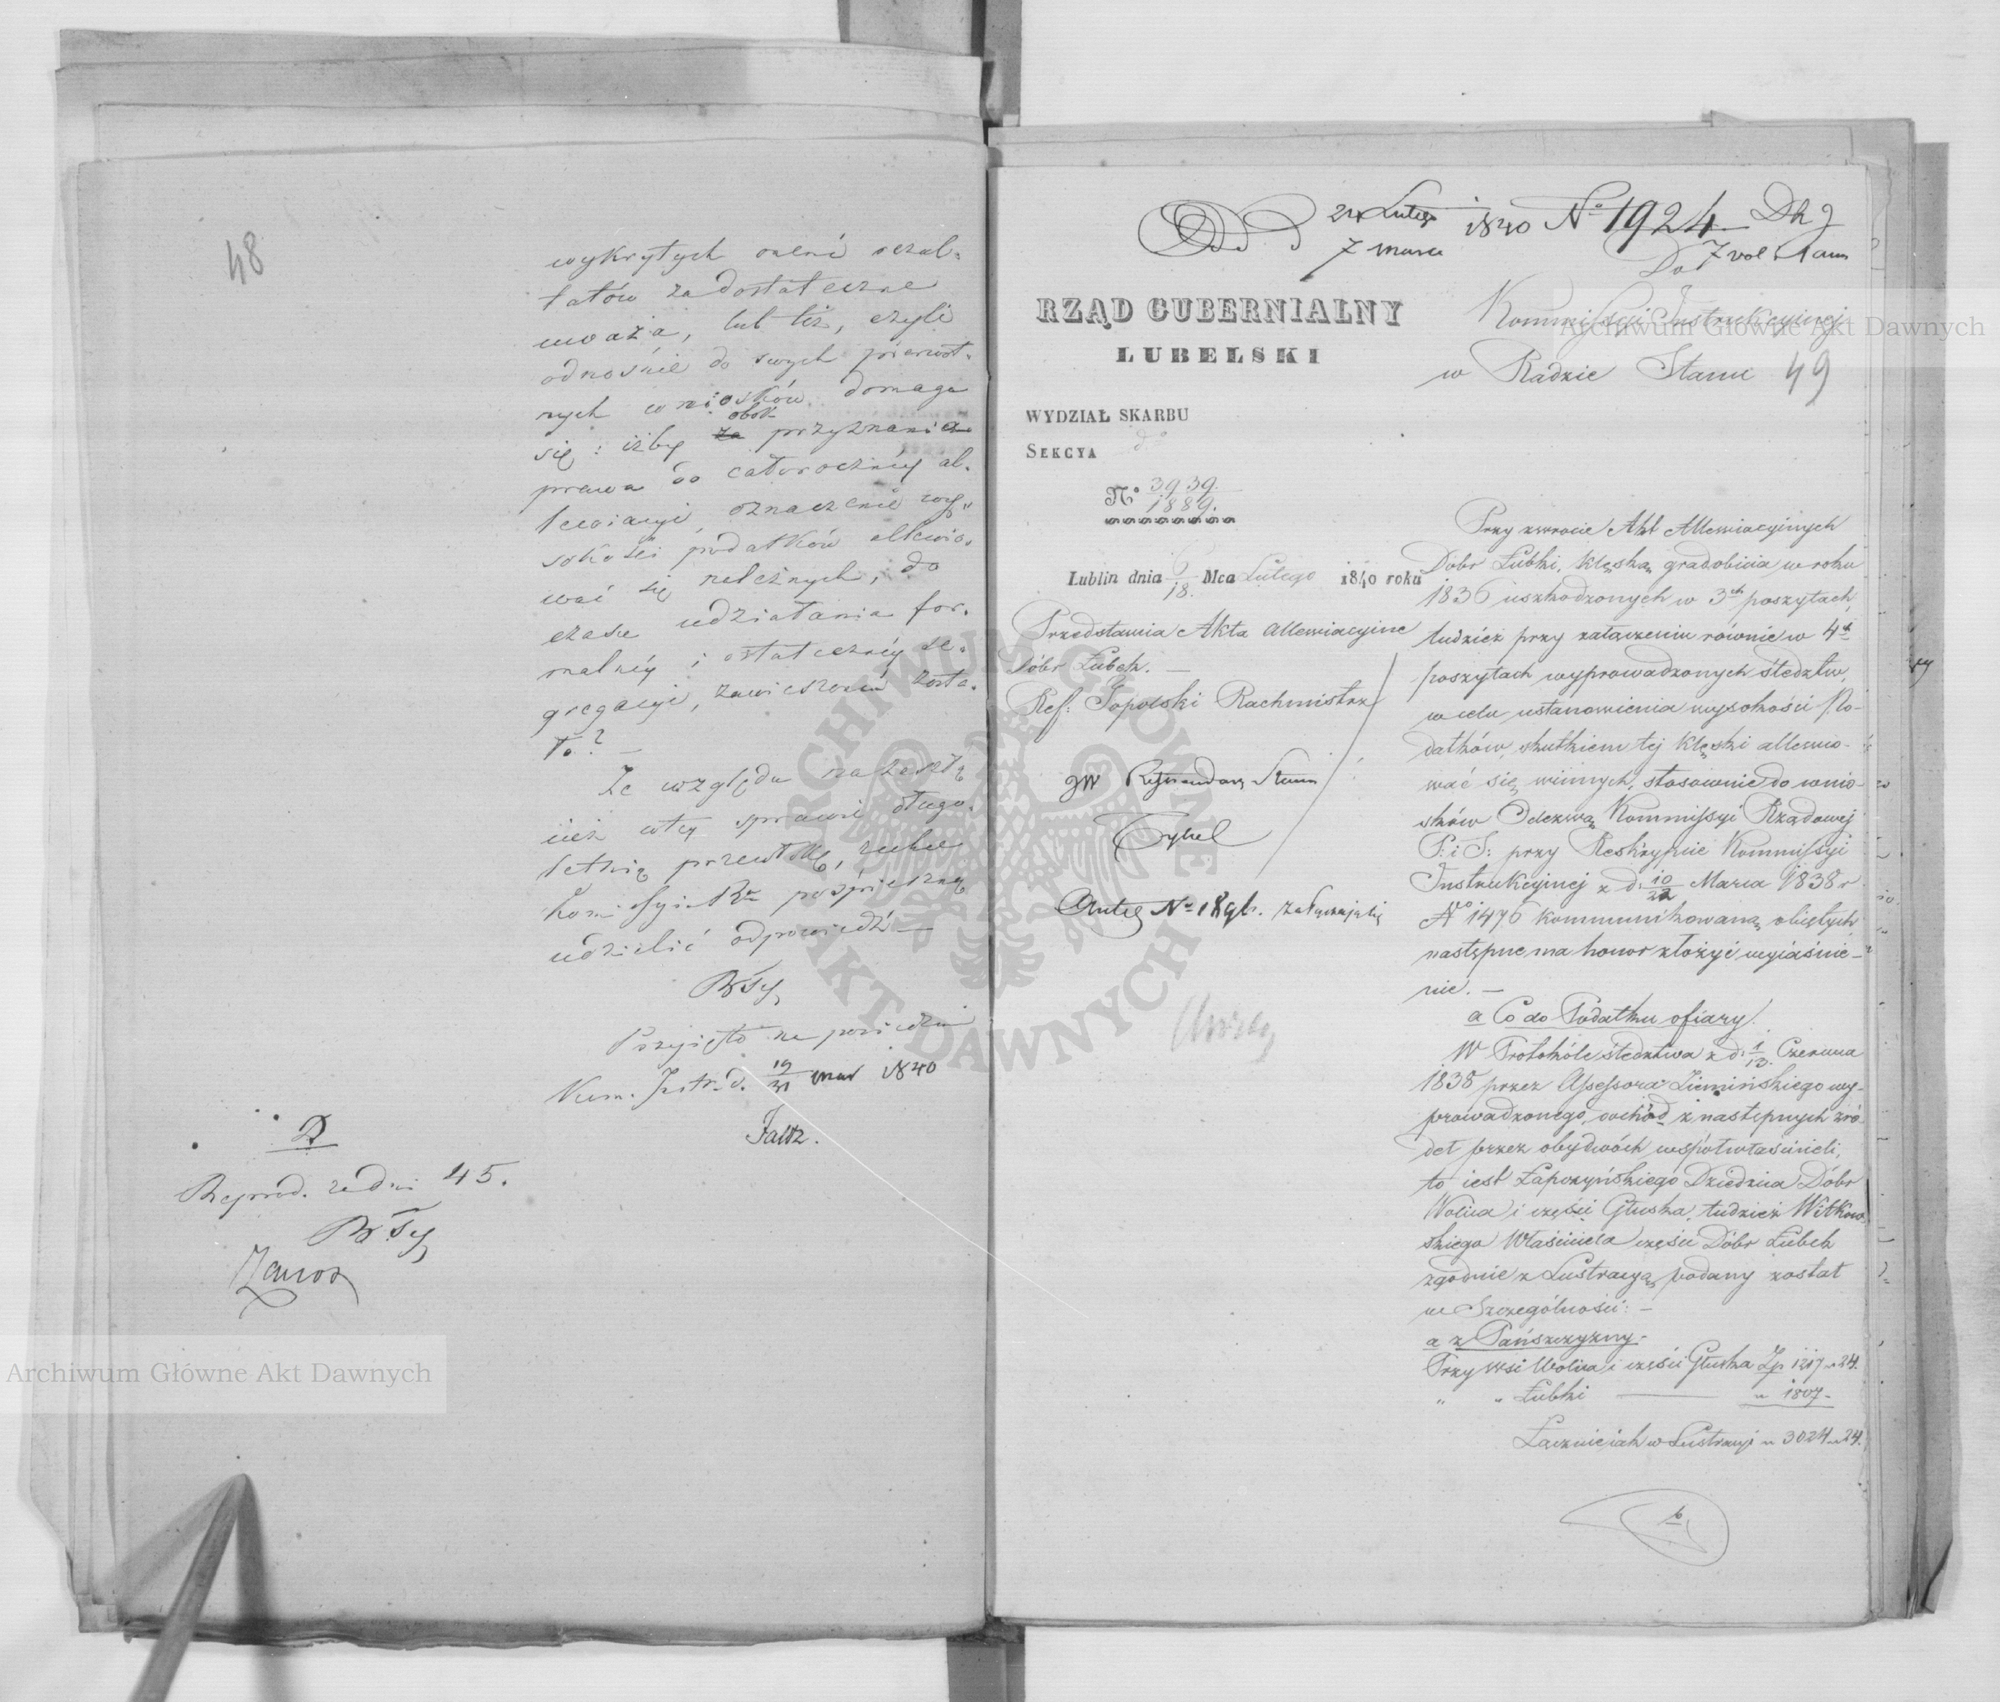 48
wykrytych onéné rezul-
tatów za dostateczne
uważa, lub też, czyli
odnośnie do swych pierwot-
nych wniosków domaga
się: iżby za obok przyznania
prawa do całorocznéj al-
lewiacyi, oznaczenie wy-
sokości podatków allewio-
wać się należnych, do
czasu udziałania for-
malnéj i ostatecznéj se-
gregacyi, zawieszoném zosta-
ło? —
Ze względu na zaszłą
już w téj sprawie długo-
letnią przewłokę, zechce
Kommissyia Rz. pośpieszną
udzielić odpowiedź —
Przyjęto na posiedzeniu
Kom. Instr. d. 19/31 mar 1840
Faltz.
D
Reprod. za dni 45.
24 Lutego
7 marca 1840 № 1924
7 vol
Do
Kommissyi Instrukcyjnej
w Radzie Stanu
49
RZĄD GUBERNIALNY
LUBELSKI
WYDZIAŁ SKARBU
SEKCYA
№ 3939/1889.
Lublin dnia 6/18. Mca Lutego 1840 roku
Przedstawia Akta allewiacyine
dóbr Łubek. —
Ref: Topolski Rachmistrz
Przy zwrocie Akt Allewiacyinych
Dobr Łubki, klęską gradobicia w roku
1836 uszkodzonych w 3ch poszytach,
tudzież przy załączeniu równie w 4ch
poszytach wyprowadzonych śledztw,
w celu ustanowienia wysokości Po-
datków, skutkiem tej klęski allewio-
wać się winnych, stosownie do wnio-
sków Odezwą Kommissyi Rządowej
P: i S: przy Reskrypcie Kommissyi
Instrukcyjnej z d. 10/22 Marca 1838 r
No 1476 kommunikowaną objętych
następne ma honor złożyć wyjaśnie-
nie. —
a Co do Podatku ofiary.
W Protokóle śledztwa z d. 1/13. Czerwca
1838 przez Assessora Ziemińskiego wy-
prowadzonego, dochód z następnych źró-
deł przez obydwóch współwłaścicieli,
to iest Łapczyńskiego Dziedzica Dóbr
Wolica i części Głuska, tudzież Witkow-
skiego Właściciela części Dóbr Łubek
zgodnie z Lustracyą podany został
w Szczególności: —
a z Pańszczyzny.
Przy Wsi Wolica i części Głuska Zp 1217 " 24.
" " Łubki — " 1807 —
Łącznie jak w Lustracyi " 3024 " 24.
Archiwum Główne Akt Dawnych
Archiwum Główne Akt Dawnych
ARCHIWUM GŁÓWNE AKT DAWNYCH